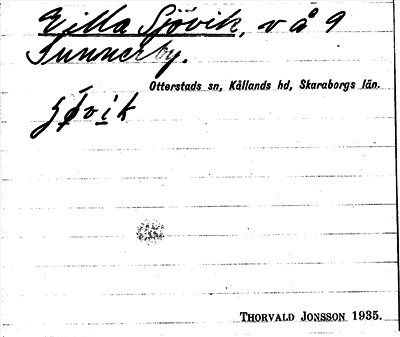 Villa Sjövik, v å 9
Sunnerby.
Otterstads sn, Kållands hd, Skaraborgs län.
ʃǿvik
THORVALD JONSSON 1935.